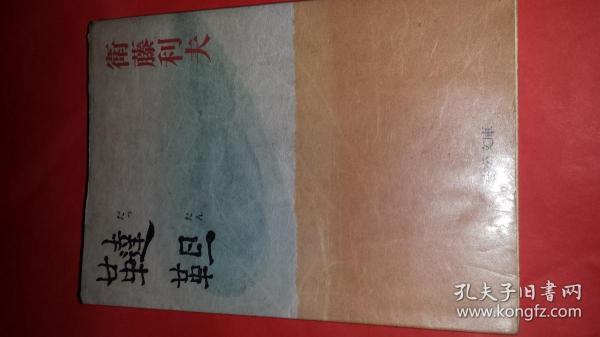 衛藤利夫
韃靼
だっ たん
文庫
孔夫子旧书网
www.kongfz.com